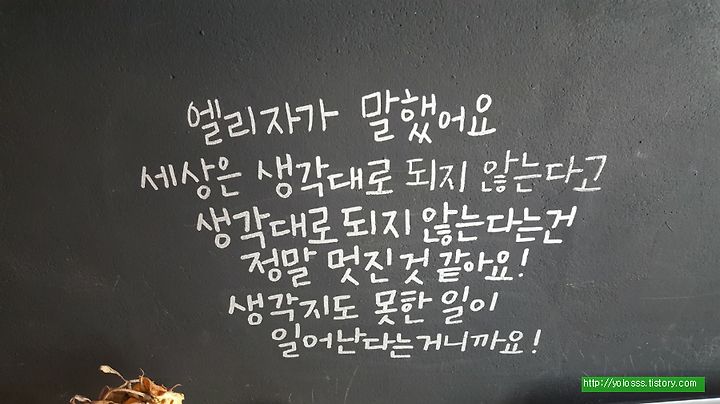 엘리자가 말했어요
세상은 생각대로 되지 않는다고
생각대로 되지 않는다는건
정말 멋진것 같아요!
생각지도 못한 일이
일어난다는거니까요!
http://yolosss.tistory.com